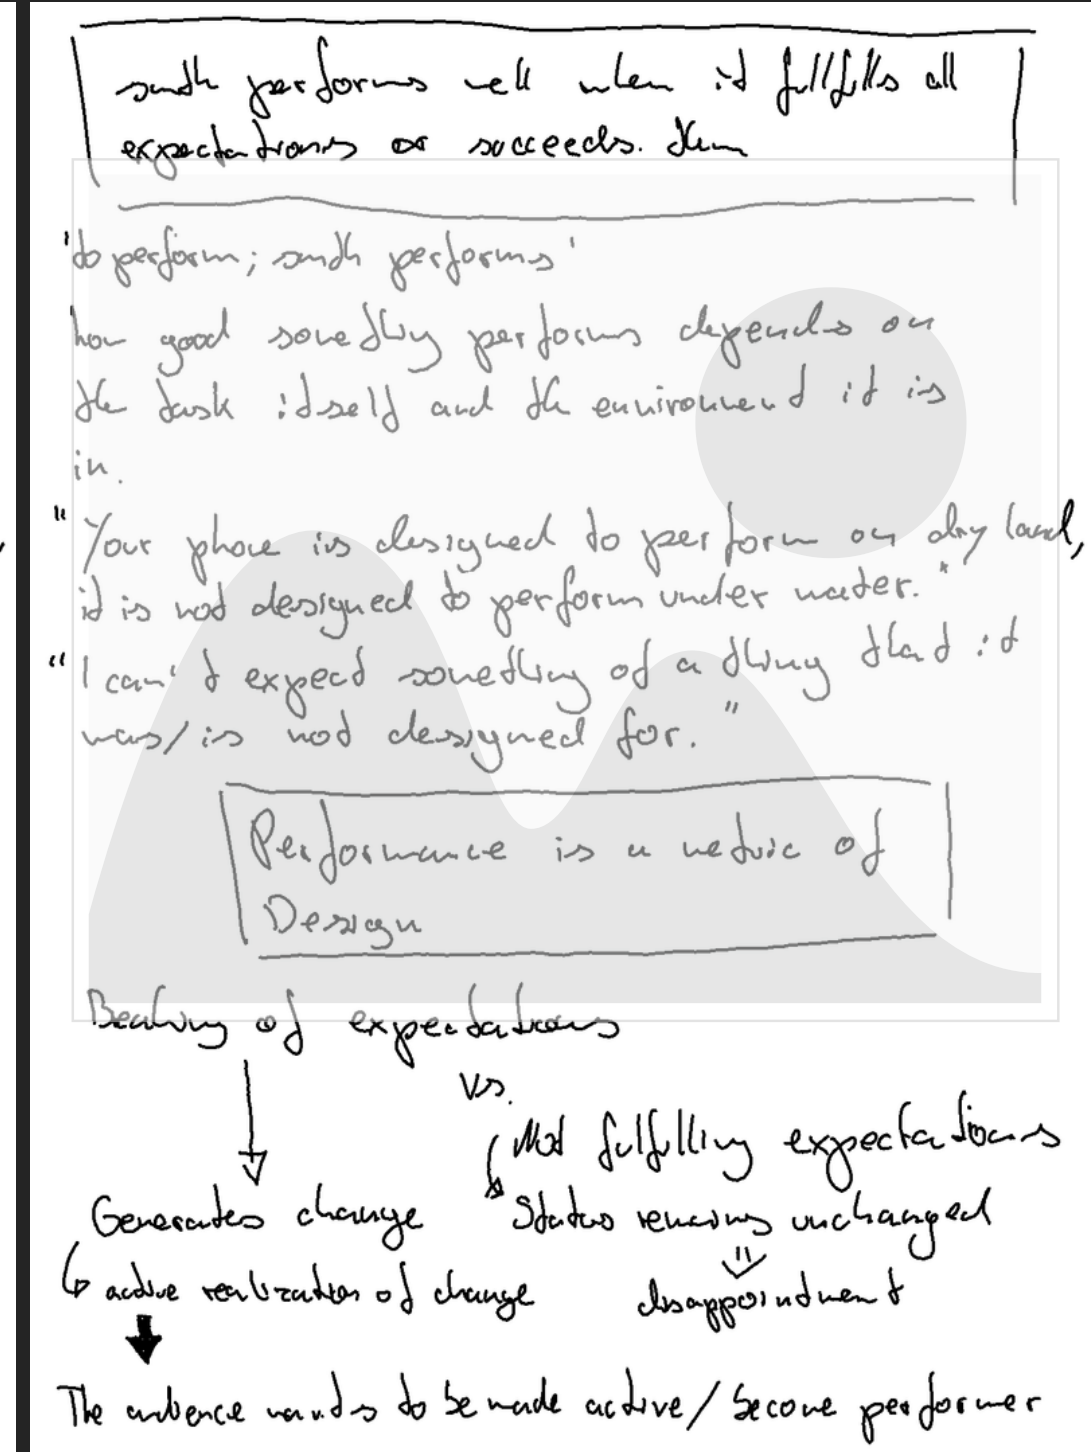 smth performs well when it fullfills all
expectations or succeeds. them
'to perform; smth performs'
'how good something performs depends on
the task itself and the environment it is
in.
"Your phone is designed to perform on dry land,
it is not designed to perform under water."
"I can't expect something of a thing that it
was/is not dessigned for."
Performance is a metric of
Design
of expectations
vs.
Not fulfilling expectations
Generates change
Status remains unchanged
active realization of change
disappointment
The audience wants to be made active/become performer